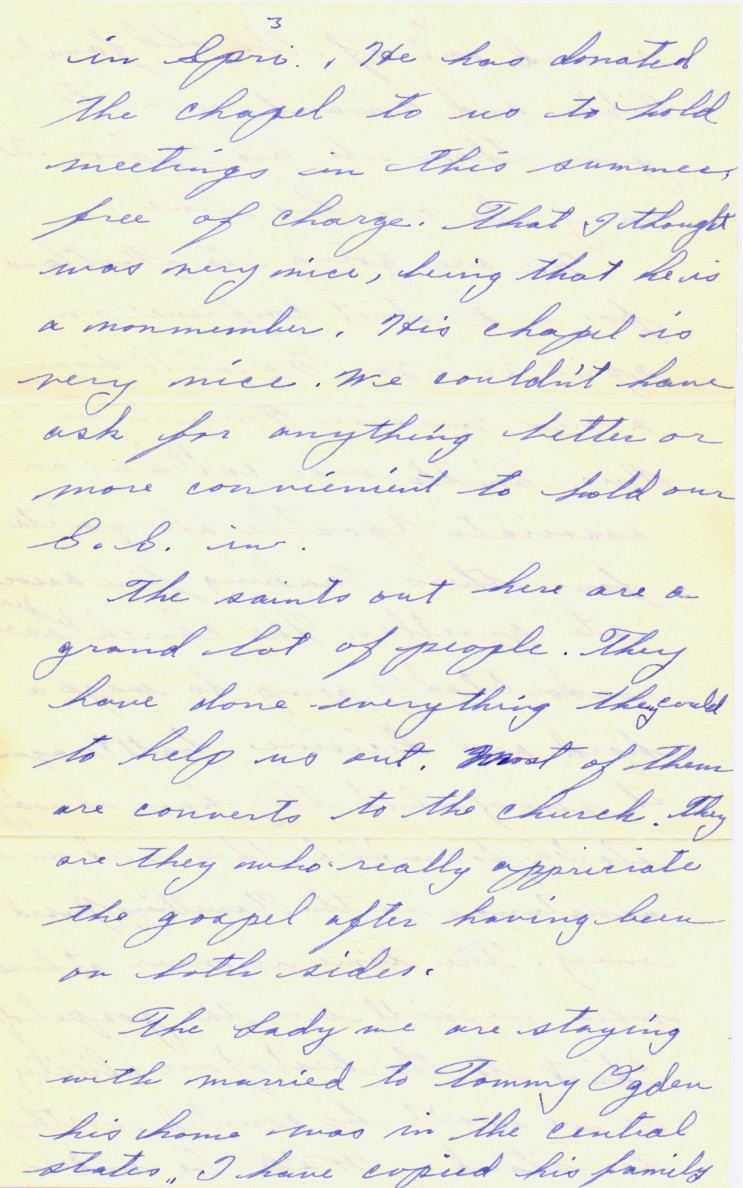 3
in Spri. . He has donated
the chapel to us to hold
meetings in this summer,
free of charge. That I thought
was very nice, being that he is
a nonmember. His chapel is
very nice. We couldn't have
ask for anything better or
more convienient to hold our
S. S. in.
The saints out here are a
grand lot of people. They
have done everything they could
to help us out. Most of them
are converts to the church. They
are they who really appriciate
the gospel after having been
on both sides.
The Lady we are staying
with married to Tommy Ogden
his home was in the central
states,, I have copied his family